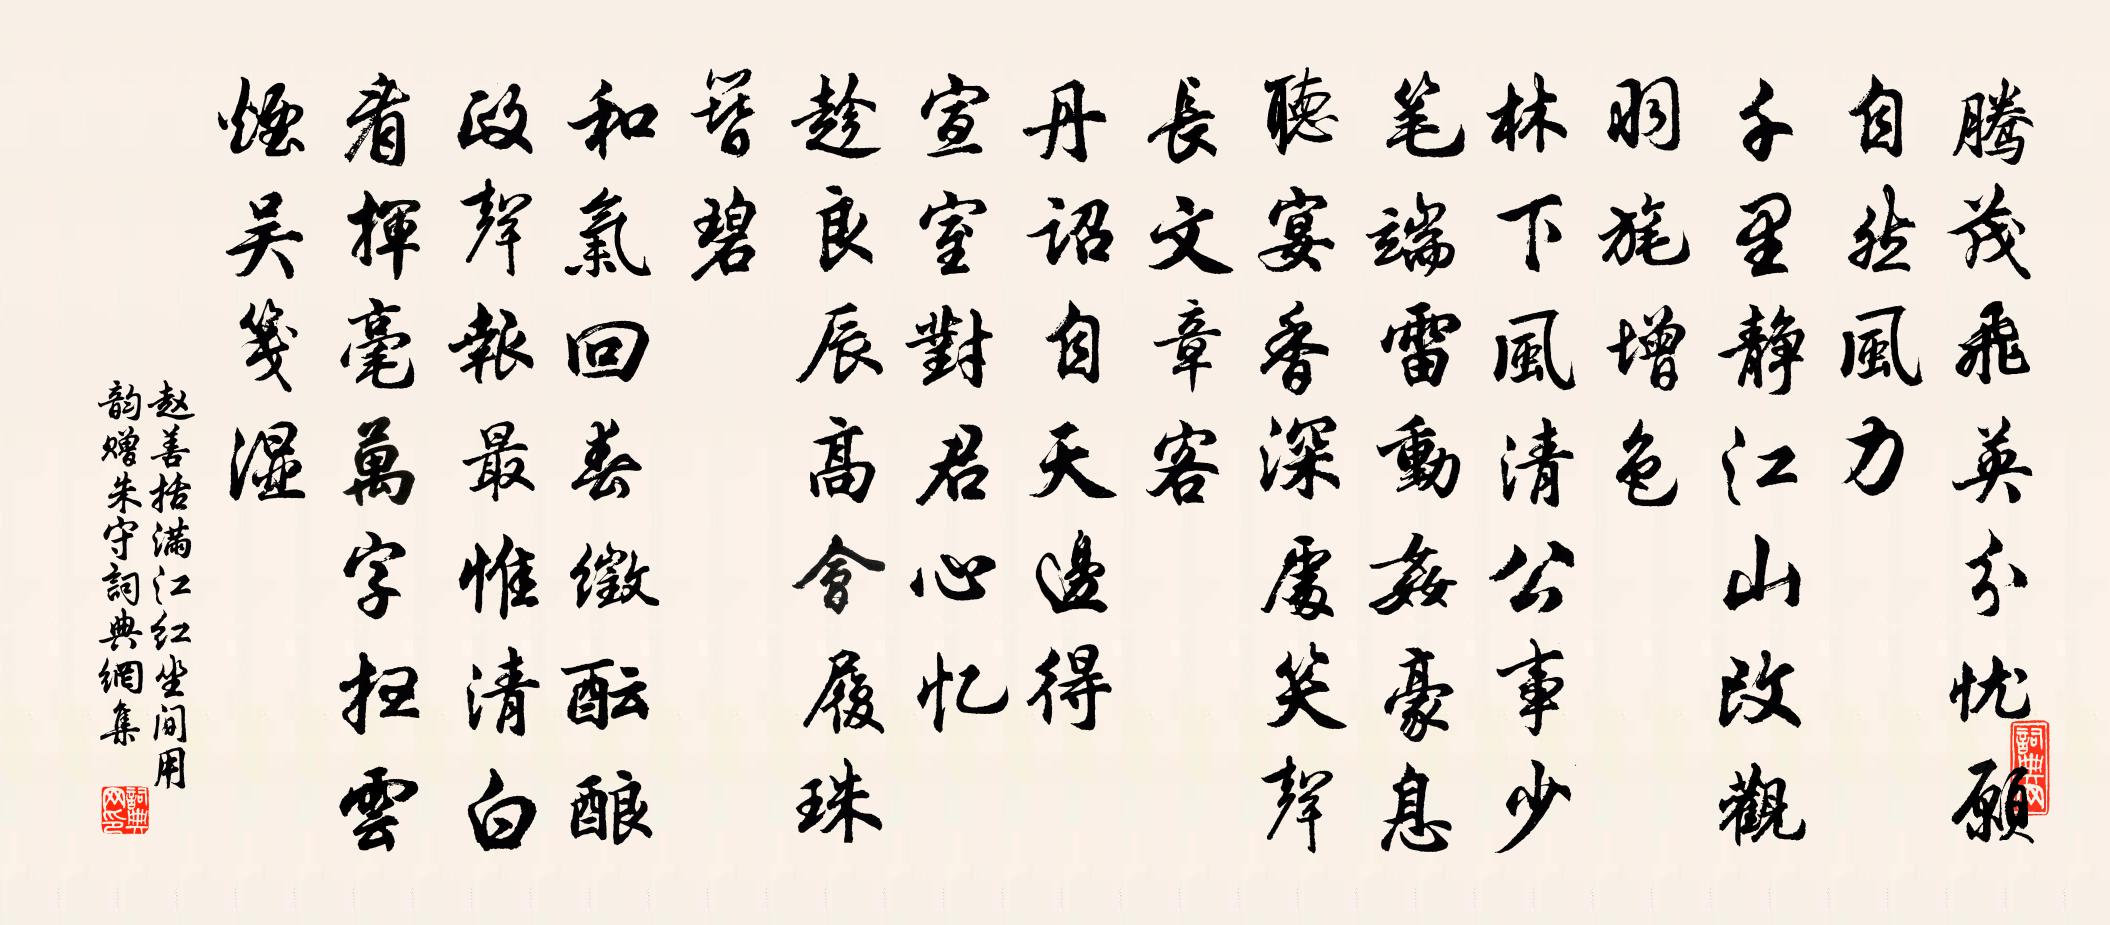 騰茂飛英分忧願
自然風力
千里靜江山改觀
羽旄增色
林下風清公事少
笔端雷動姦豪息
聽宴香深處笑聲
長文章客
丹詔自天邊得
宣室對君心忆
趁良辰高會履珠
簪碧
和氣回春徵酝酿
政聲報最惟清白
看揮毫萬字扫雲
煙吴箋濕
赵善括满江红坐间用
韵赠朱守詞典網集
詞典网
詞典网印